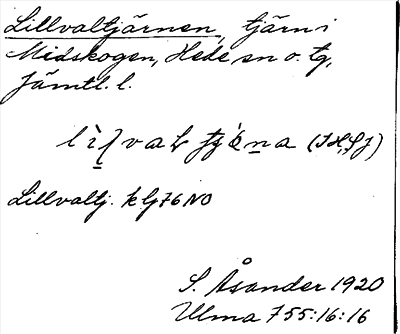 Lillvaltjärnen, tjärn i
Midskogen, Hede sn o. tg,
Jämtl. l.
Lillvaltj. k Lj76 NO
S. Åsander 1920
Ulma 755:16:16